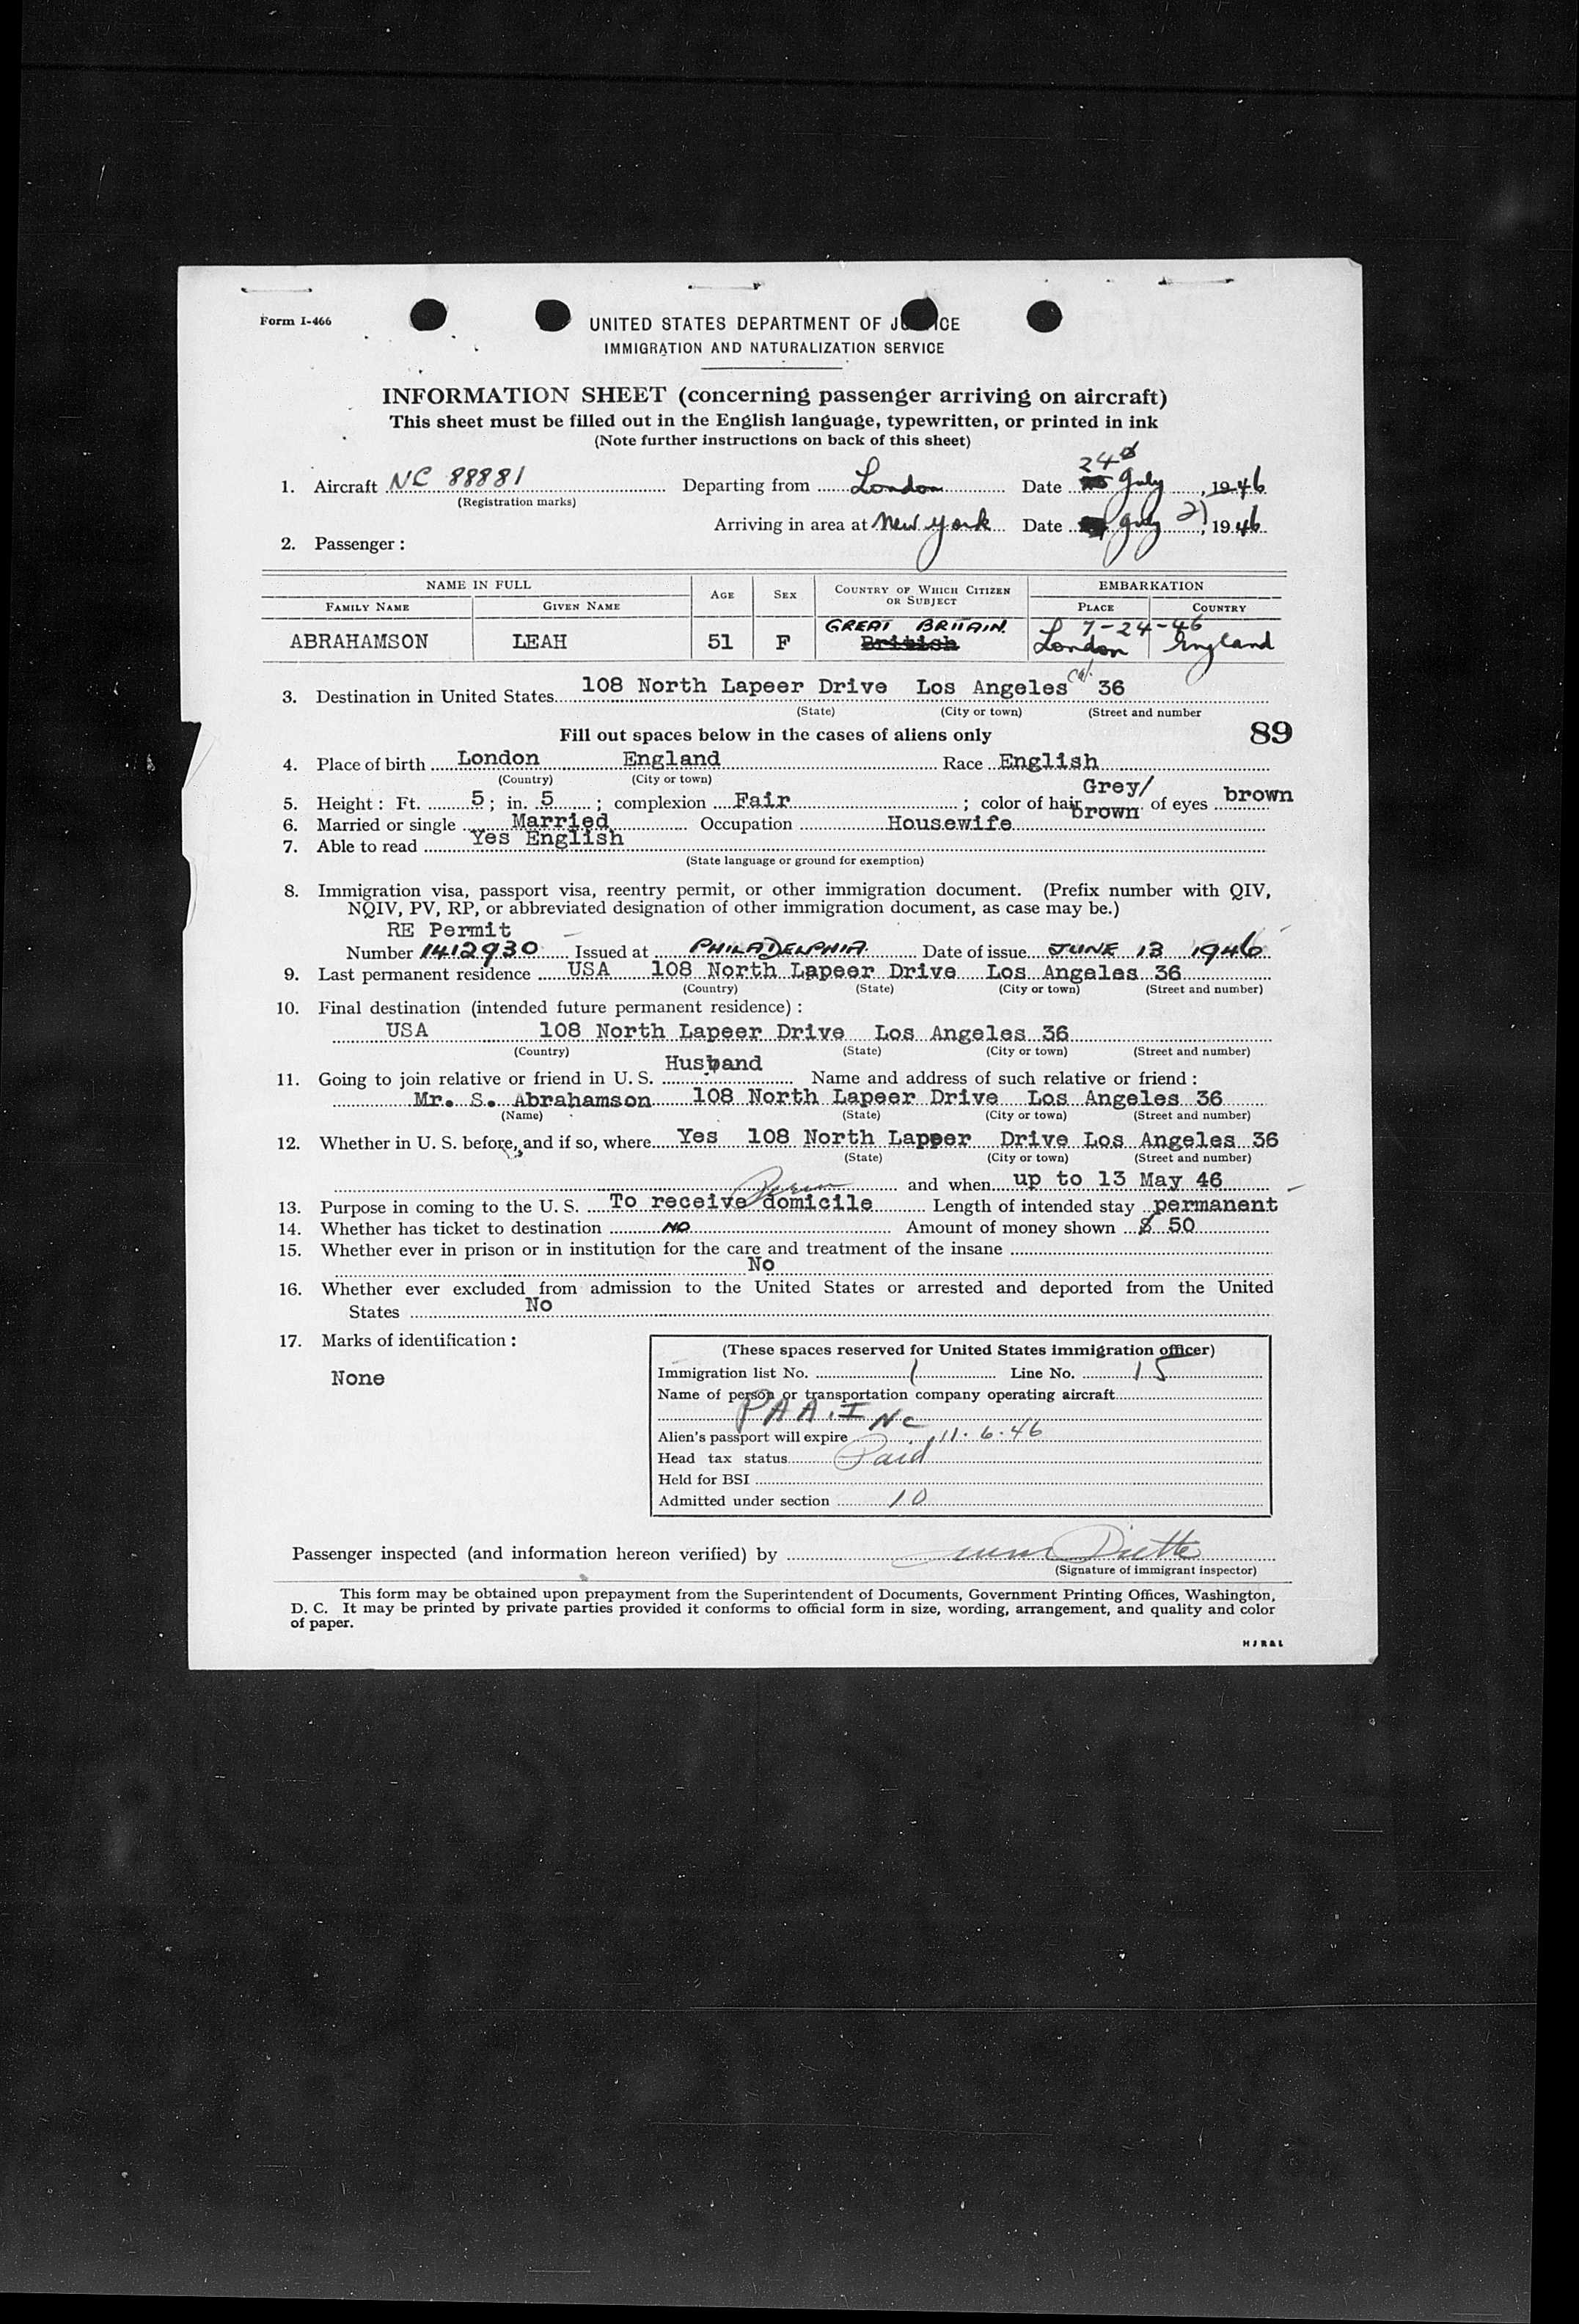 Form I-466
UNITED STATES DEPARTMENT OF JUSTICE
IMMIGRATION AND NATURALIZATION SERVICE
INFORMATION SHEET (concerning passenger arriving on aircraft)
This sheet must be filled out in the English language, typewritten, or printed in ink
(Note further instructions on back of this sheet)
24
1. Aircraft NC 88881 Departing from London Date July, 1946
(Registration marks)
Arriving in area at New York Date July, 1946
2. Passenger:
NAME IN FULL AGE SEX COUNTRY OF WHICH CITIZEN OR SUBJECT EMBARKATION
FAMILY NAME GIVEN NAME PLACE COUNTRY
GREAT BRITAIN. 7-24-46
ABRAHAMSON LEAH 51 F British London England
Cal.
3. Destination in United States 108 North Lapeer Drive Los Angeles 36
(State) (City or town) (Street and number
Fill out spaces below in the cases of aliens only 89
4. Place of birth London England Race English
(Country) (City or town)
5. Height: Ft. 5; in. 5; complexion Fair; color of hair Grey/brown of eyes brown
6. Married or single Married Occupation Housewife
7. Able to read Yes English
(State language or ground for exemption)
8. Immigration visa, passport visa, reentry permit, or other immigration document. (Prefix number with QIV,
NQIV, PV, RP, or abbreviated designation of other immigration document, as case may be.)
RE Permit
Number 1412930 Issued at PHILADELPHIA. Date of issue JUNE 13 1946
9. Last permanent residence USA 108 North Lapeer Drive Los Angeles 36
(Country) (State) (City or town) (Street and number)
10. Final destination (intended future permanent residence):
USA 108 North Lapeer Drive Los Angeles 36
(Country) (State) (City or town) (Street and number)
11. Going to join relative or friend in U. S. Husband Name and address of such relative or friend:
Mr. S. Abrahamson 108 North Lapeer Drive Los Angeles 36
(Name) (State) (City or town) (Street and number)
12. Whether in U. S. before, and if so, where Yes 108 North Lapper Drive Los Angeles 36
(State) (City or town) (Street and number)
and when up to 13 May 46
13. Purpose in coming to the U. S. To receive domicile Length of intended stay permanent
14. Whether has ticket to destination NO Amount of money shown $ 50
15. Whether ever in prison or in institution for the care and treatment of the insane
No
16. Whether ever excluded from admission to the United States or arrested and deported from the United
States No
17. Marks of identification:
None
(These spaces reserved for United States immigration officer)
Immigration list No. 1 Line No. 15
Name of person or transportation company operating aircraft
PAA. INC
Alien's passport will expire 11-6-46
Head tax status Paid
Held for BSI
Admitted under section 10
Passenger inspected (and information hereon verified) by
(Signature of immigrant inspector)
This form may be obtained upon prepayment from the Superintendent of Documents, Government Printing Offices, Washington,
D. C. It may be printed by private parties provided it conforms to official form in size, wording, arrangement, and quality and color
of paper.
HJR&L